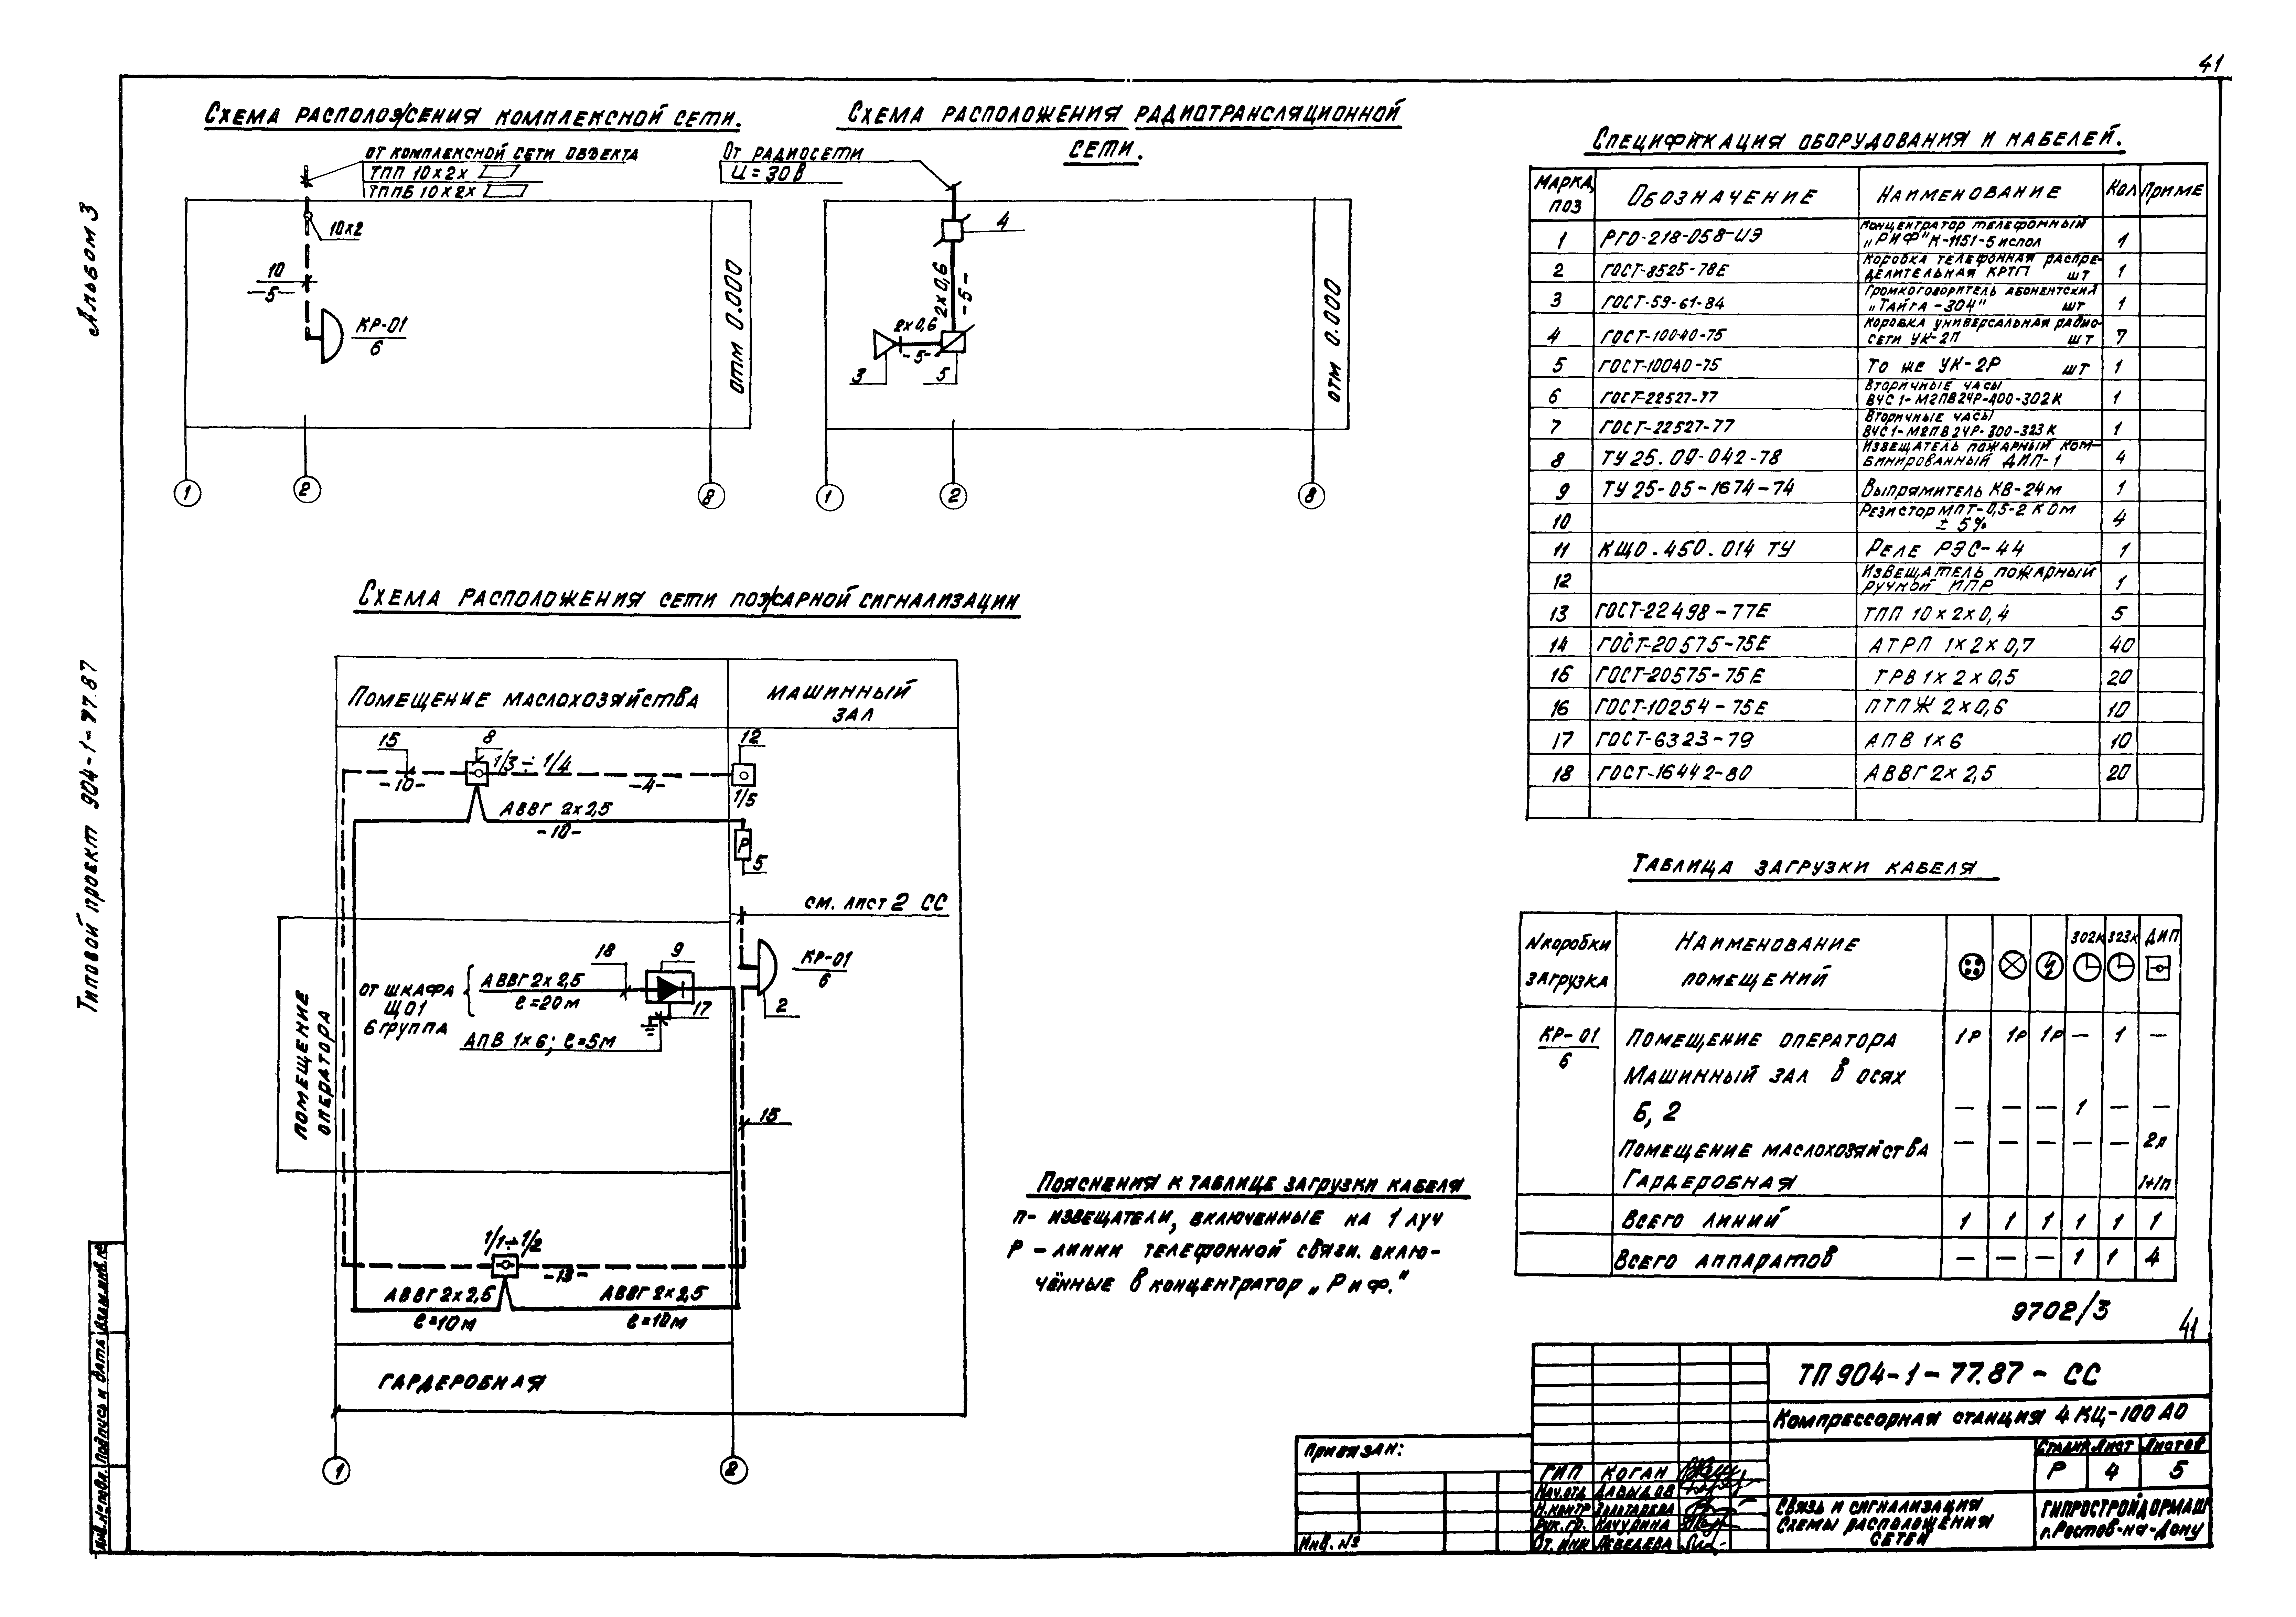 41
Альбом 3
Типовой проект 904-1-77.87
Схема расположения комплексной сети.
от комплексной сети объекта
ТПП 10х2х
ТППБ 10х2х
10х2
10
-5-
КР-01
6
отм 0.000
1
2
8
Схема расположения радиотрансляционной
сети.
От радиосети
U = 30 В
4
2х0,6
-5-
2х0,6
-5-
3
5
отм 0.000
1
2
8
Схема расположения сети пожарной сигнализации
Помещение маслохозяйства
машинный
зал
15
-10-
8
1/3 ÷ 1/4
-4-
12
1/5
АВВГ 2х2,5
-10-
Р
5
см. лист 2 СС
Помещение
оператора
от шкафа
ЩО1
6 группа
АВВГ 2х2,5
ℓ=20м
18
9
17
АПВ 1х6; ℓ=5м
КР-01
6
2
15
1/1÷1/2
-13-
АВВГ 2х2,5
ℓ=10м
АВВГ 2х2,5
ℓ=10м
Гардеробная
1
2
Спецификация оборудования и кабелей.
Марка, поз | Обозначение | Наименование | Кол | Приме
1 | РГО-218-058-ИЭ | Концентратор телефонный „РИФ" К-1151-5 испол | 1
2 | ГОСТ-8525-78Е | Коробка телефонная распределительная КРТП шт | 1
3 | ГОСТ-59-61-84 | Громкоговоритель абонентский „Тайга-304" шт | 1
4 | ГОСТ-10040-75 | Коробка универсальная радиосети УК-2П шт | 7
5 | ГОСТ-10040-75 | То же УК-2Р шт | 1
6 | ГОСТ-22527-77 | Вторичные часы ВЧС1-М2ПВ24Р-400-302К | 1
7 | ГОСТ-22527-77 | Вторичные часы ВЧС1-М2ПВ24Р-300-323К | 1
8 | ТУ 25.09-042-78 | Извещатель пожарный комбинированный ДИП-1 | 4
9 | ТУ 25-05-1674-74 | Выпрямитель КВ-24м | 1
10 | Резистор МПТ-0,5-2 кОм ± 5% | 4
11 | КЩО.450.014 ТУ | Реле РЭС-44 | 1
12 | Извещатель пожарный ручной ИПР | 1
13 | ГОСТ-22498-77Е | ТПП 10х2х0,4 | 5
14 | ГОСТ-20575-75Е | АТРП 1х2х0,7 | 40
15 | ГОСТ-20575-75Е | ТРВ 1х2х0,5 | 20
16 | ГОСТ-10254-75Е | ПТПЖ 2х0,6 | 10
17 | ГОСТ-6323-79 | АПВ 1х6 | 10
18 | ГОСТ-16442-80 | АВВГ 2х2,5 | 20
Таблица загрузки кабеля
N коробки загрузка | Наименование помещений | 302к | 323к | ДИП
КР-01 6 | Помещение оператора | 1Р | 1Р | 1Р | — | 1 | —
Машинный зал в осях
Б, 2 | — | — | — | 1 | — | —
Помещение маслохозяйства | — | — | — | — | — | 2п
Гардеробная | 1+1п
Всего линий | 1 | 1 | 1 | 1 | 1 | 1
Всего аппаратов | — | — | — | 1 | 1 | 4
Пояснения к таблице загрузки кабеля
п- извещатели, включенные на 1 луч
Р - линии телефонной связи. вклю-
чённые в концентратор „Риф."
9702/3
41
ТП 904-1-77.87 - СС
Компрессорная станция 4КЦ-100АО
Стадия Лист Листов
Р 4 5
Связь и сигнализация
Схемы расположения
сетей
ГИПРОСТРОЙДОРМАШ
г.Ростов-на-Дону
Привязан:
Инв. №
ГИП Коган
Нач.отд Давыдов
Н.контр Золотарева
Рук.гр. Качурина
Ст. инж Лебедева
Инв.№ подл. Подпись и дата Взам.инв.№